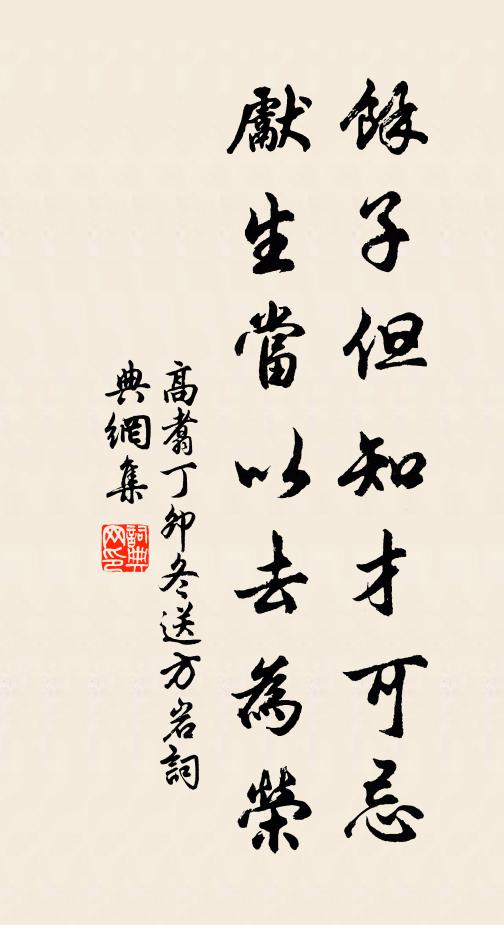 餘子但知才可忌
獻生當以去為榮
高翥丁卯冬送方岩詞
典網集
詞典
網印